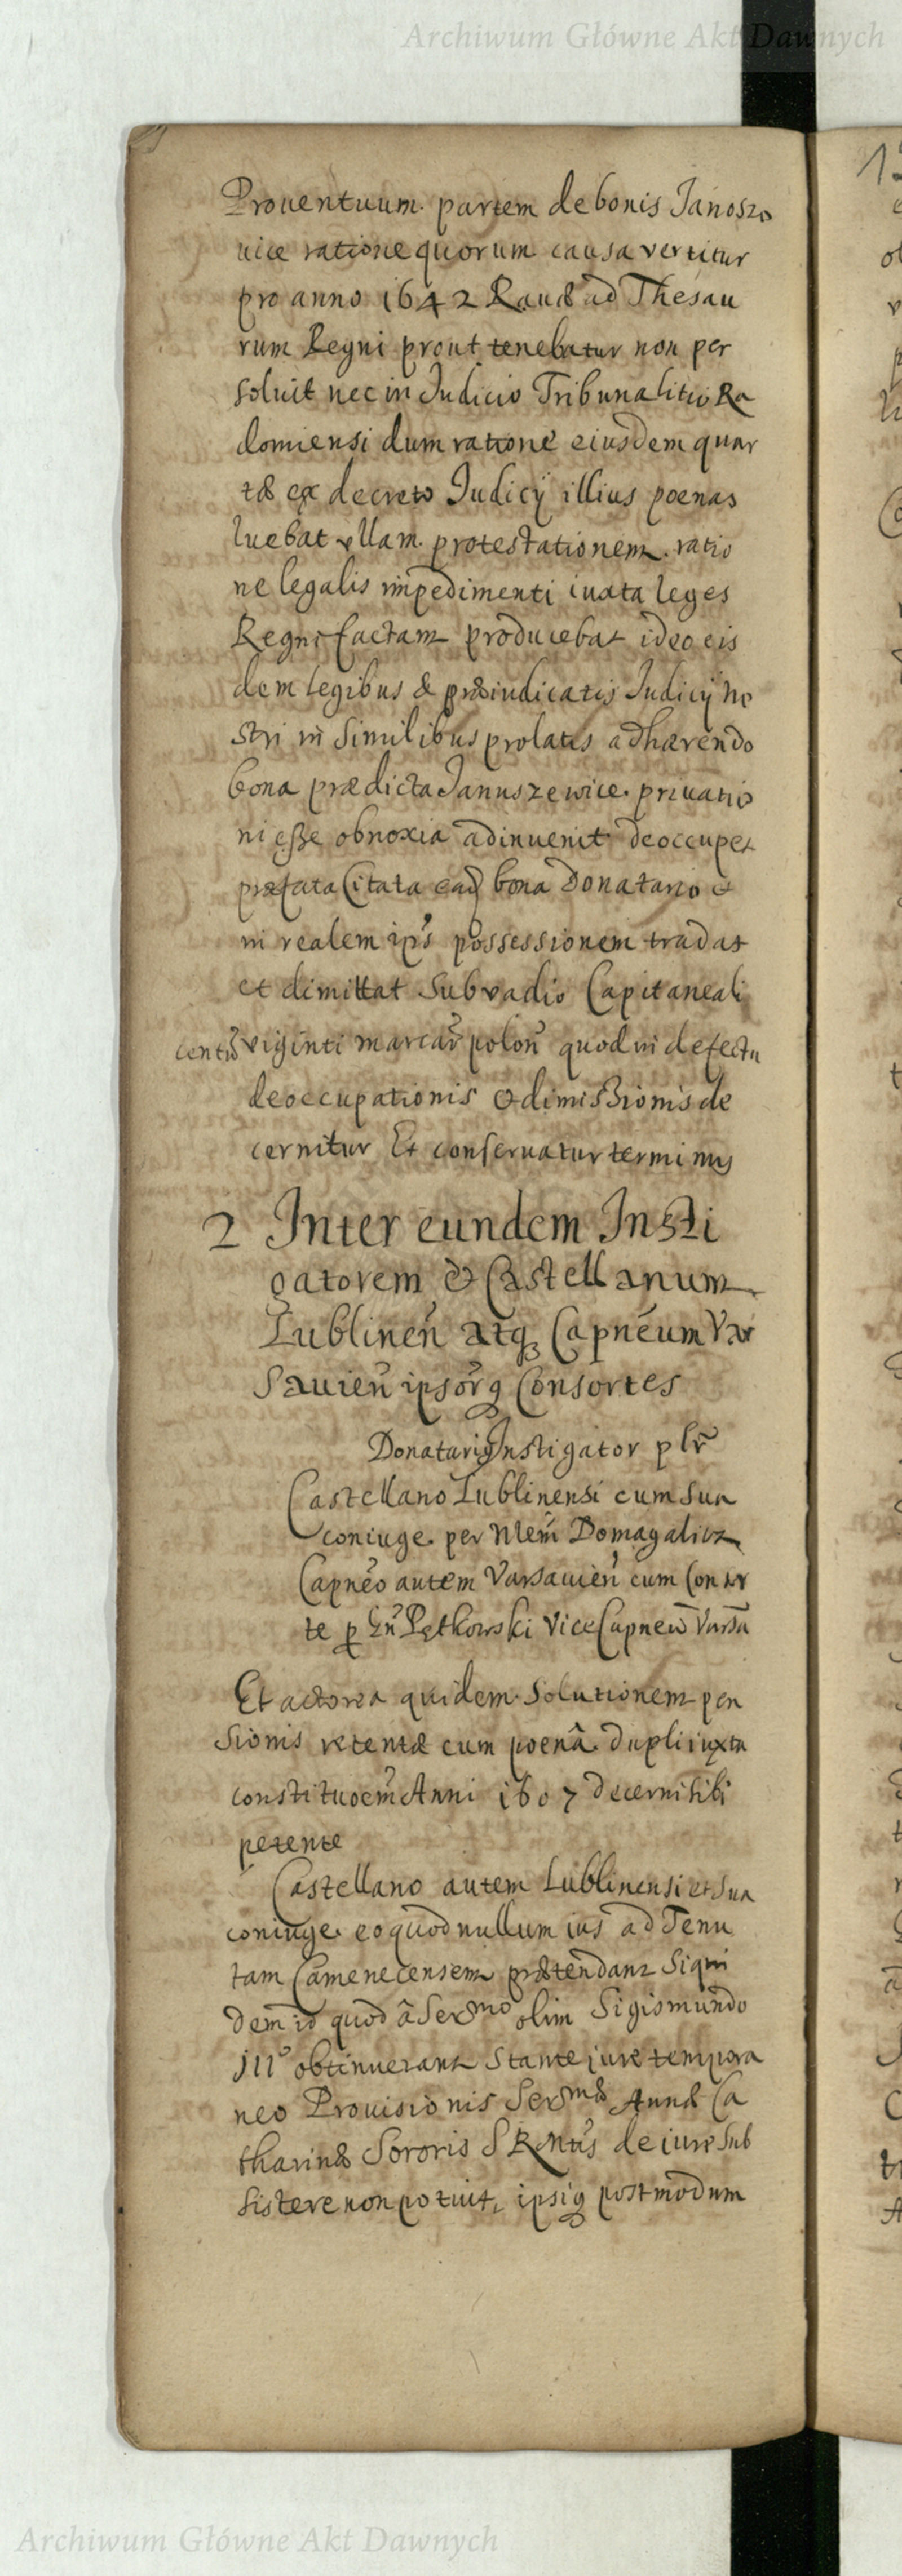 Archiwum Główne Akt Dawnych
Prouentuum partem de bonis Janoszo
uice ratione quorum causa vertitur
pro anno 1642 Rauæ ad Thesau
rum Regni prout tenebatur non per
soluit nec in Judicio Tribunalitio Ra
domiensi dum ratione eiusdem quar
tæ ex decreto Judicij illius poenas
luebat ullam protestationem ratio
ne legalis impedimenti iuxta leges
Regni factam producebat ideo eis
dem legibus & præiudicatis Judicij no
stri in similibus prolatis adhærendo
bona prædicta Januszewice priuatio
ni esse obnoxia adinuenit deoccupet
præfata Citata ead bona Donatario et
in realem ipi's possessionem tradat
et dimittat sub vadio Capitaneali
centũ viginti marcar̃ polon̄ quod in defectu
deoccupationis & dimissionis de
cernitur Et conseruatur terminus
2 Inter eundem Insti
gatorem & Castellanum
Lublinen̄ atq₃ Capnēum Var
sauien̄ ipsorq Consortes
Donatarig Instigator plr̃
Castellano Lublinensi cum sua
coniuge per Mem̄ Domagalicz
Capnēo autem Varsauien̄ cum Consor
te p Gn̄ Pętkowski ViceCapneū Varsa
Et actorea quidem solutionem pen
sionis retentæ cum poenâ dupli iuxta
constituoem̄ Anni 1607 decerni sibi
petente
Castellano autem Lublinensi et sua
coniuge eo quod nullum ius ad Tenu
tam Camenecensem prætendant siqui
dem id quod â Sermo olim Sigismundo
III° obtinuerant stante iure tempora
neo Prouisionis Sermæ Annæ Ca
tharinæ Sororis S R Mtis de iure sub
sistere non potuit, ipsiq postmodum
Archiwum Główne Akt Dawnych